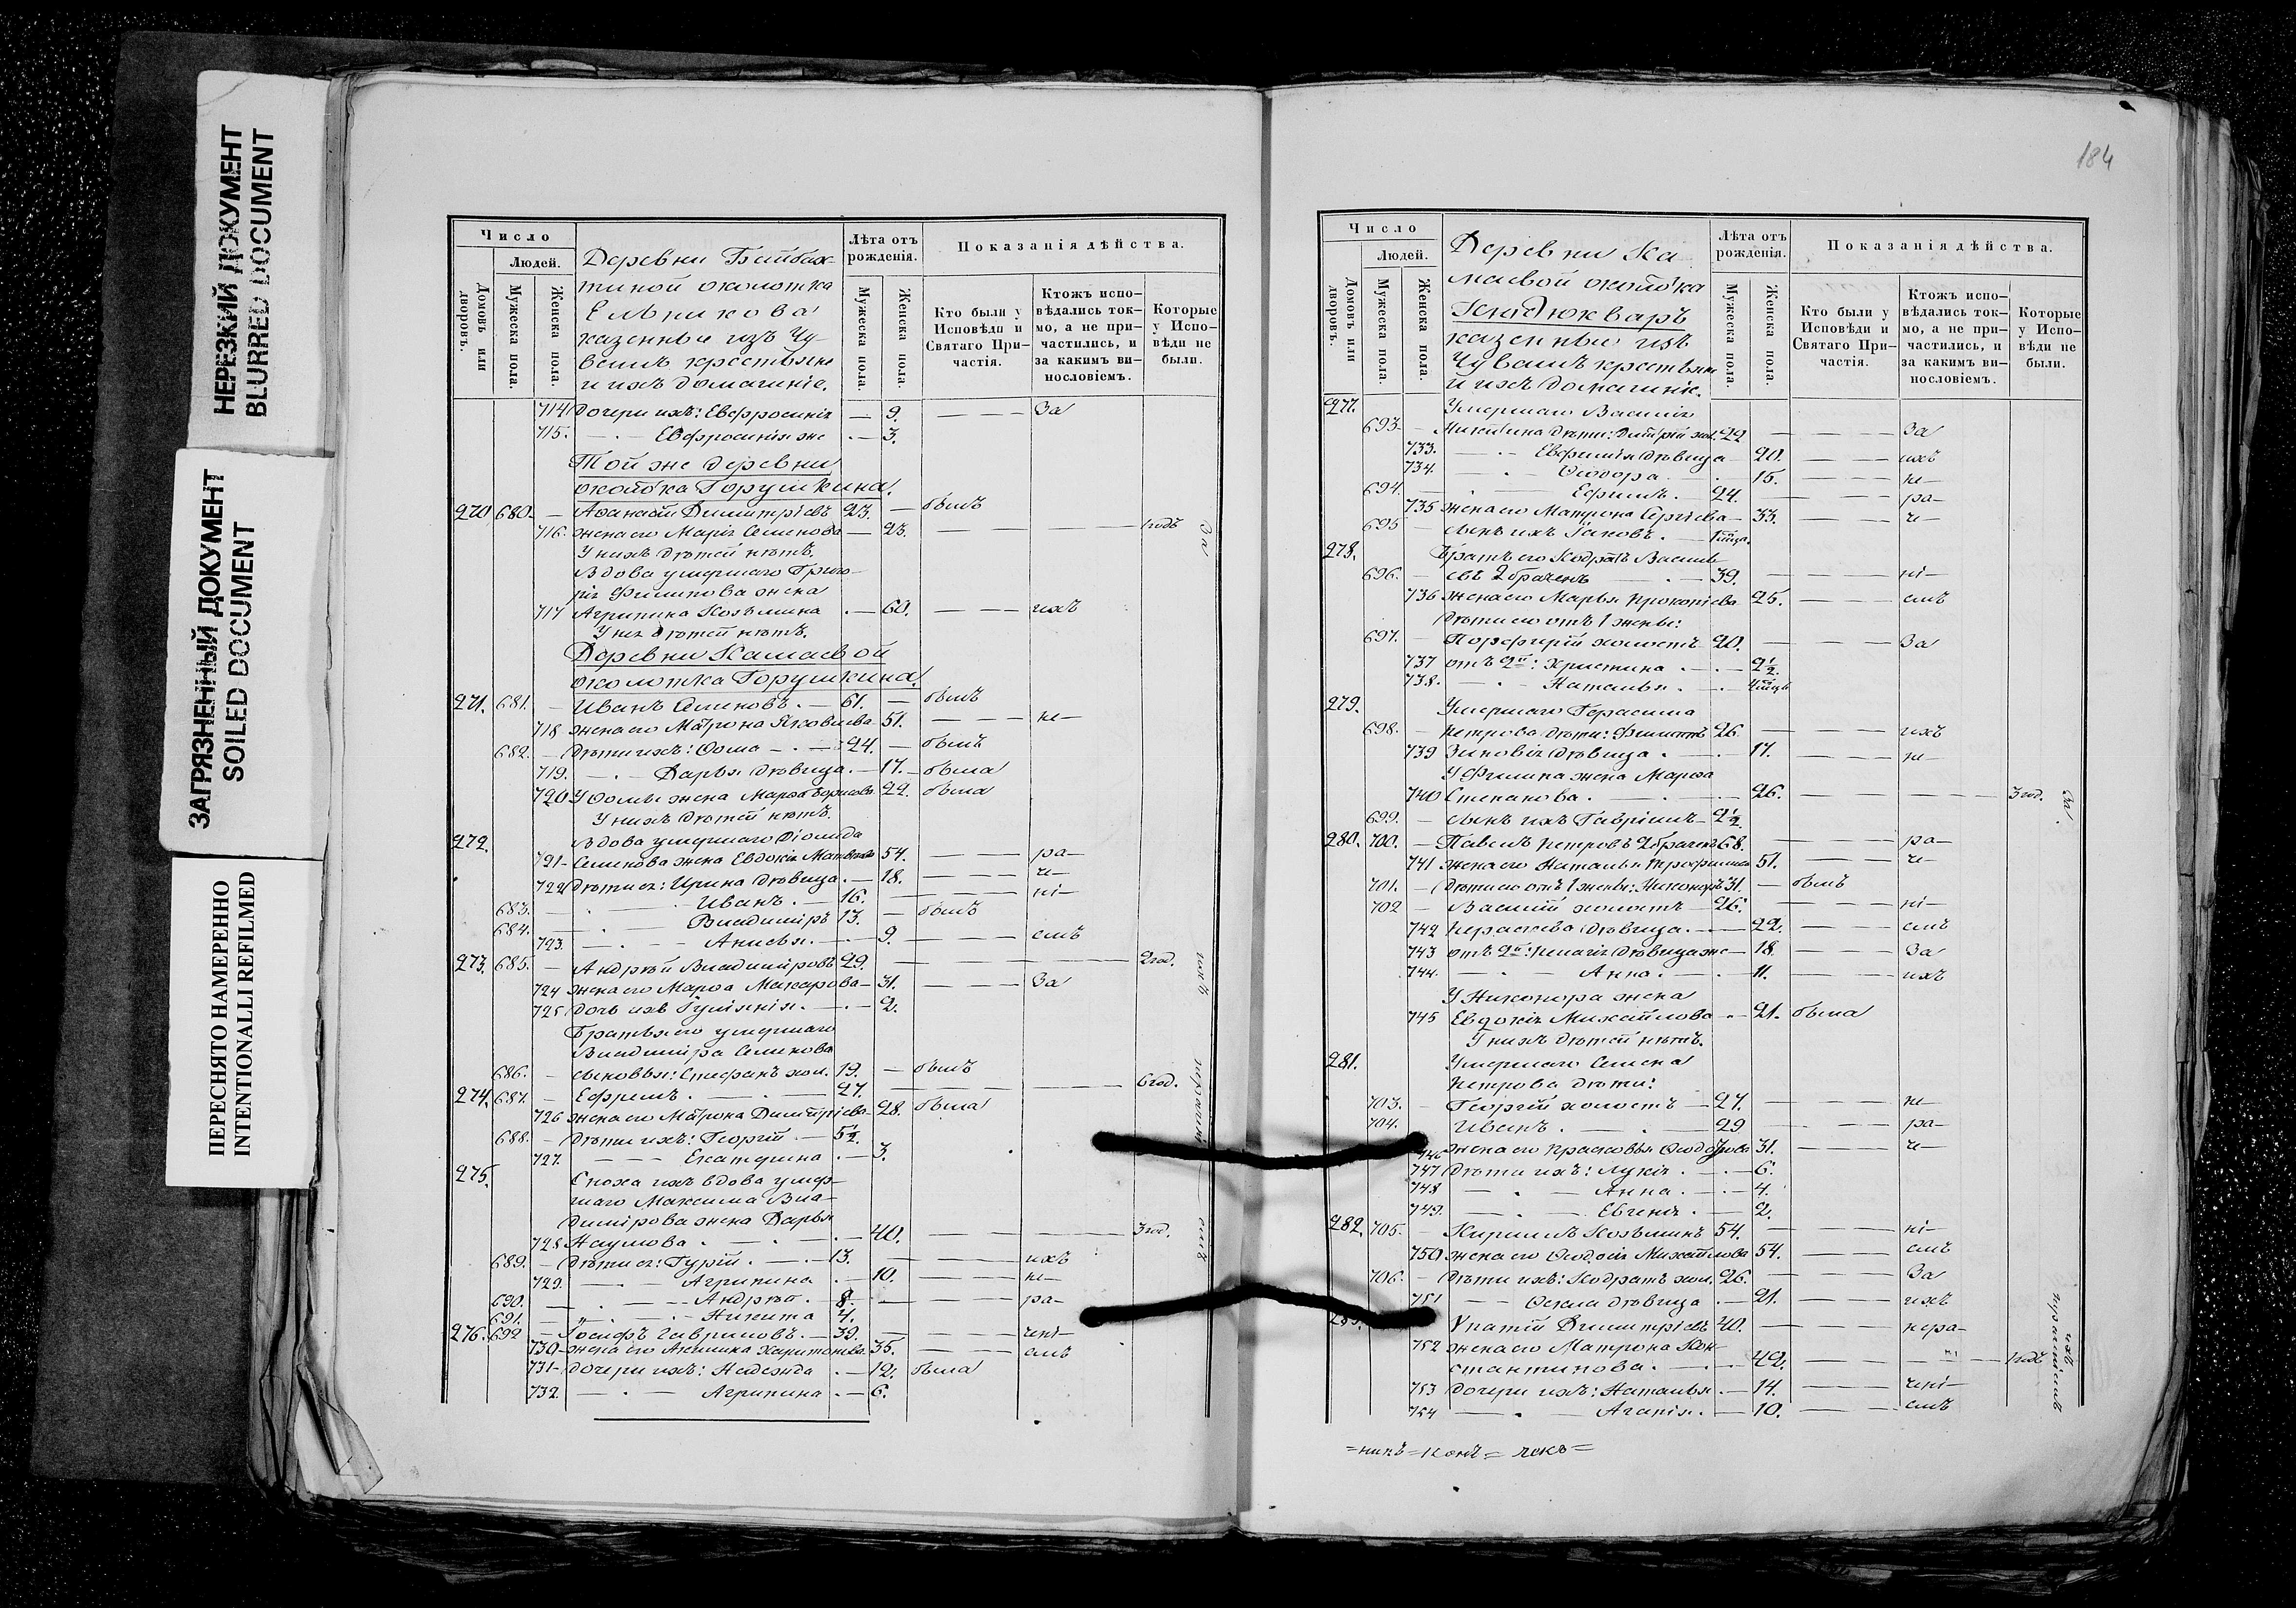 НЕРЕЗКИЙ ДОКУМЕНТ
BLURRED DOCUMENT
ЗАГРЯЗНЕННЫЙ ДОКУМЕНТ
SOILED DOCUMENT
ПЕРЕСНЯТО НАМЕРЕННО
INTENTIONALLI REFILMED
Число
Людей.
Домовъ или дворовъ.
Мужеска пола.
Женска пола.
Деревни
околотка
Ельникова
казенные изъ Чу-
вашъ крестьяне
и ихъ домашніе.
Лѣта отъ рожденія.
Мужеска пола.
Женска пола.
Показанія дѣйства.
Кто были у Исповѣди и Святаго При-частія.
Ктожъ испо-вѣдались ток-мо, а не при-частились, и за какимъ ви-нословіемъ.
Которые у Испо-вѣди не были.
714 Дочери ихъ: Евфросинія — 9. — — — За
715. — . — Евфросинія же . — 3.
Той же деревни
околотка Горушкина.
270 680. — Аѳанасій Димитріевъ 23. — былъ
716. жена его Марія Семенова — 23. — — — — 1 годъ
У нихъ дѣтей нѣтъ.
Вдова умершаго Григо-
рія Филипова жена
717 Агрипина Козьмина . — 60. — — — ихъ
У нея дѣтей нѣтъ.
Деревни Камаевой
околотка Горушкина
271. 681. — Иванъ Семеновъ . — 61. — былъ
718 жена его Матрона Яковлева 51. — — — не—
682. — Дѣти ихъ: Ѳома — . — 24. — былъ
719. — . — Дарья дѣвица . — 17. — была
720 У Ѳомы жена Марѳа Борисова 22. была
У нихъ дѣтей нѣтъ.
272. Вдова умершаго Діомида
721 — Семенова жена Евдокія Матвѣева 54. — — — ра—
722 Дѣти ея: Ирина дѣвица . — 18. — — — че—
683. — . — Иванъ . — 16. — — — ні—
684. — . — Владиміръ 13. — былъ
723. — . — Анисья . — . — 9. — — — емъ
273. 685. — Андрей Владиміровъ 29. — — — — 2 год.
724 жена его Марѳа Макарова — 31. — — — За
725 Дочь ихъ Іуліянія . — . — 2.
Братья его умершаго
Владиміра Семенова
686. — сыновья: Стефанъ хол. 19. — былъ
274. 687. — Ефремъ . — . — 27. — — — — 6 год.
726 жена его Матрона Димитріева 28. была
688. — Дѣти ихъ: Георгій . — 5½.
727. — — — Екатерина . — 3.
275. Сноха ихъ вдова умер-
шаго Максима Вла-
димірова жена Дарья
728 Наумова . — . — . — 40. — — — — 3 год.
689. — Дѣти ея: Гурій . — . — 13. — — — ихъ
729. — . — Агрипина . — 10. — — — не—
690. — . — Андрей . — 8. — — — ра—
691. — . — Никита 4.
276. 692 — Іосифъ Гавриловъ . — 39. — — — чені—
730 — жена его Акилина Харитонова 35. — — — емъ
731 — дочери ихъ: Надежда . — 12. была
732. — . — Агрипина . — 6.
За
ихъ
нераченіемъ
184
Число
Людей.
Домовъ или дворовъ.
Мужеска пола.
Женска пола.
Деревни Ка
маевой околотка
казенные изъ
Чувашъ крестьяне
и ихъ домашніе.
Лѣта отъ рожденія.
Мужеска пола.
Женска пола.
Показанія дѣйства.
Кто были у Исповѣди и Святаго При-частія.
Ктожъ испо-вѣдались ток-мо, а не при-частились, и за какимъ ви-нословіемъ.
Которые у Испо-вѣди не были.
277. Умершаго Василія
693. — Никитина дѣти: Дмитрій хол. 22 — — — За
733. — . — Евфимія дѣвица — 20. — — — ихъ
734. — . — Ѳеодора — . 15. — — — не—
694. — . — Ефимъ . — 24. — — — ра—
735 жена его Матрона Сергіева — 33. — — — че—
695 — сынъ ихъ Іаковъ . —
278. Братъ его Кодратъ Василь
696. — евъ 2 браченъ — . — 39. — — — ні—
736 жена его Марья Прокопіева 25. — — — емъ
Дѣти его отъ 1 жены:
697. — Порфирій холостъ 20. — — — За
737 отъ 2й: Христина . — . — 2½
738. — . — Наталья . — . — 4
279. Умершаго Герасима
698. — Петрова дѣти: Филиппъ 26. — — — ихъ
739 Зиновія дѣвица . — . — 17. — — — не—
У Филипа жена Марѳа
740 Степанова . — . — . — 26. — — — — 3 год.
699. — сынъ ихъ Гавріилъ — 2½
280. 700. — Павелъ Петровъ 2 браченъ 68. — — — ра—
741 жена его Наталья Трофимова 51. — — — че—
701. — Дѣти его отъ 1 жены: Никоноръ 31. — былъ
702 — Василій холостъ — 26. — — — ні—
742 дѣвица . — . — 22. — — — емъ
743 отъ 2й: Пелагія дѣвица же — 18. — — — За
744. — . — Анна . — . 11. — — — ихъ
У Никонора жена
745 Евдокія Михайлова . — 21. была
У нихъ дѣтей нѣтъ.
281. Умершаго Семена
Петрова дѣти:
703. — Георгій холостъ — 27. — — — не—
704. Иванъ . — . — 29 — — — ра—
746 жена его Прасковья Ѳеодорова 31. — — — че—
747 Дѣти ихъ: Лукія . — . — 6.
748 — . — Анна . — . — 4.
749. — . — Евгенія . — 2.
282. 705. Кириллъ Козьминъ 54. — — — ні—
750 жена его Ѳеодосія Михайлова 54. — — — емъ
706. — Дѣти ихъ: Кодратъ хол. 26. — — — За
751 — — дѣвица . — 21. — — — ихъ
Ипатій Димитріевъ 40. — — — нера—
752 жена его Матрона Кон-
стантинова . — . — 42. — — — — 1 годъ
753 Дочери ихъ: Наталья . — 14. — — — чені—
754 — . — Агапія . — 10. — — — емъ
За
ихъ
нераченіемъ